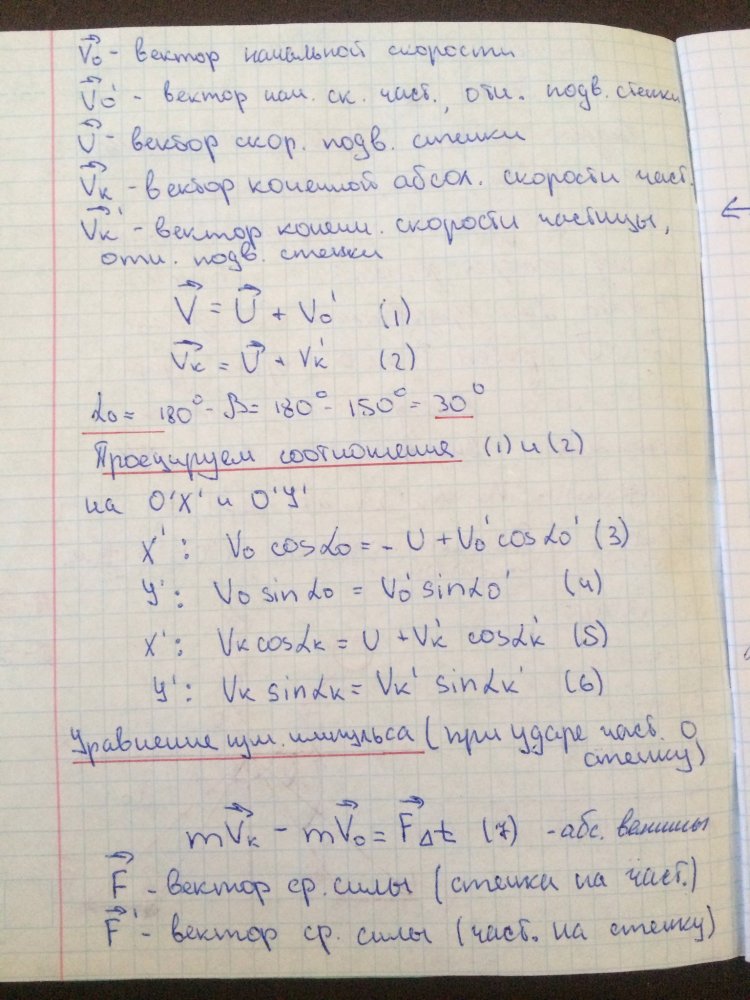 V⃗₀ - вектор начальной скорости
V⃗₀' - вектор нач. ск. част., отн. подв. стенки
U⃗ - вектор скор. подв. стенки
V⃗к - вектор конечной абсол. скорости част.
V⃗к' - вектор конечн. скорости частицы,
отн. подв. стенки
V⃗ = U⃗ + V₀' (1)
V⃗к = U⃗ + Vк' (2)
α₀ = 180° - β = 180° - 150° = 30°
Проецируем соотношения (1) и (2)
на O'X' и O'Y'
X': V₀ cosα₀ = - U + V₀' cosα₀' (3)
Y': V₀ sinα₀ = V₀' sinα₀' (4)
X': Vк cosαк = U + Vк' cosαк' (5)
Y': Vк sinαк = Vк' sinαк' (6)
Уравнение изм. импульса (при ударе част. о
стенку)
mV⃗к - mV⃗₀ = F⃗Δt (7) - абс.
F⃗ - вектор ср. силы (стенки на част.)
F⃗' - вектор ср. силы (част. на стенку)